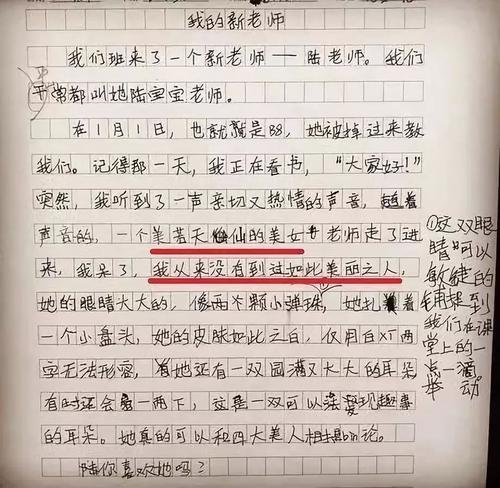 我的新老师
我们班来了一个新老师——陆老师。我们
平常都叫她陆宝宝老师。
在1月1日，也就是88，她被掉过来教
我们。记得那一天，我正在看书，“大家好！”
突然，我听到了一声亲切又热情的声音，随着
声音的，一个美若天仙的美女老师走了进
来，我呆了，我从来没有到过如此美丽之人，
她的眼睛大大的，像两个颗小弹珠，她扎着
一个小盘头，她的皮肤如此之白，仅用白XT两
字无法形容，她还有一双圆满又大大的耳朵
有时还会一两下，这是一双可以发现趣事
的耳朵。她真的可以和四大美人相提bin论。
陆你喜欢她吗？
①这双眼
睛可以
敏捷的
捕捉到
我们在课
堂上的一
点一滴。
举动